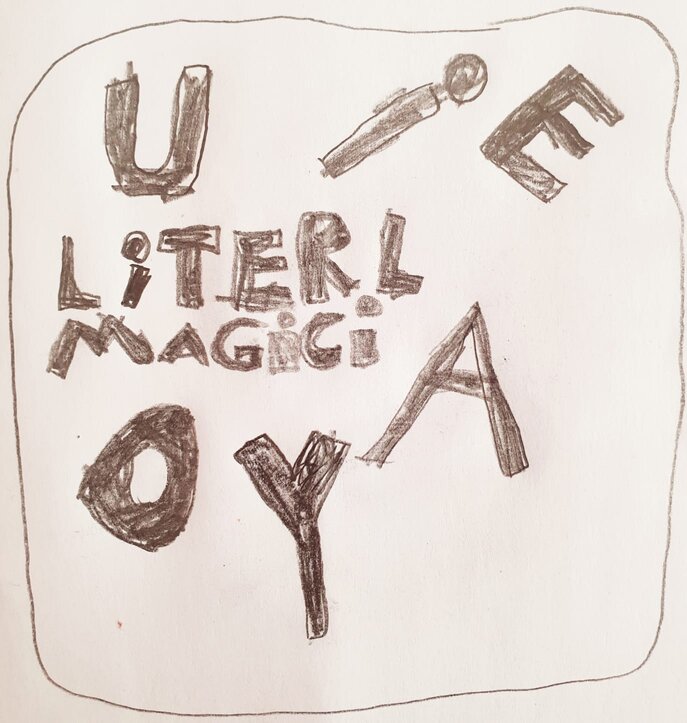 U i E
LiTERL
MAGiCi
A
O Y